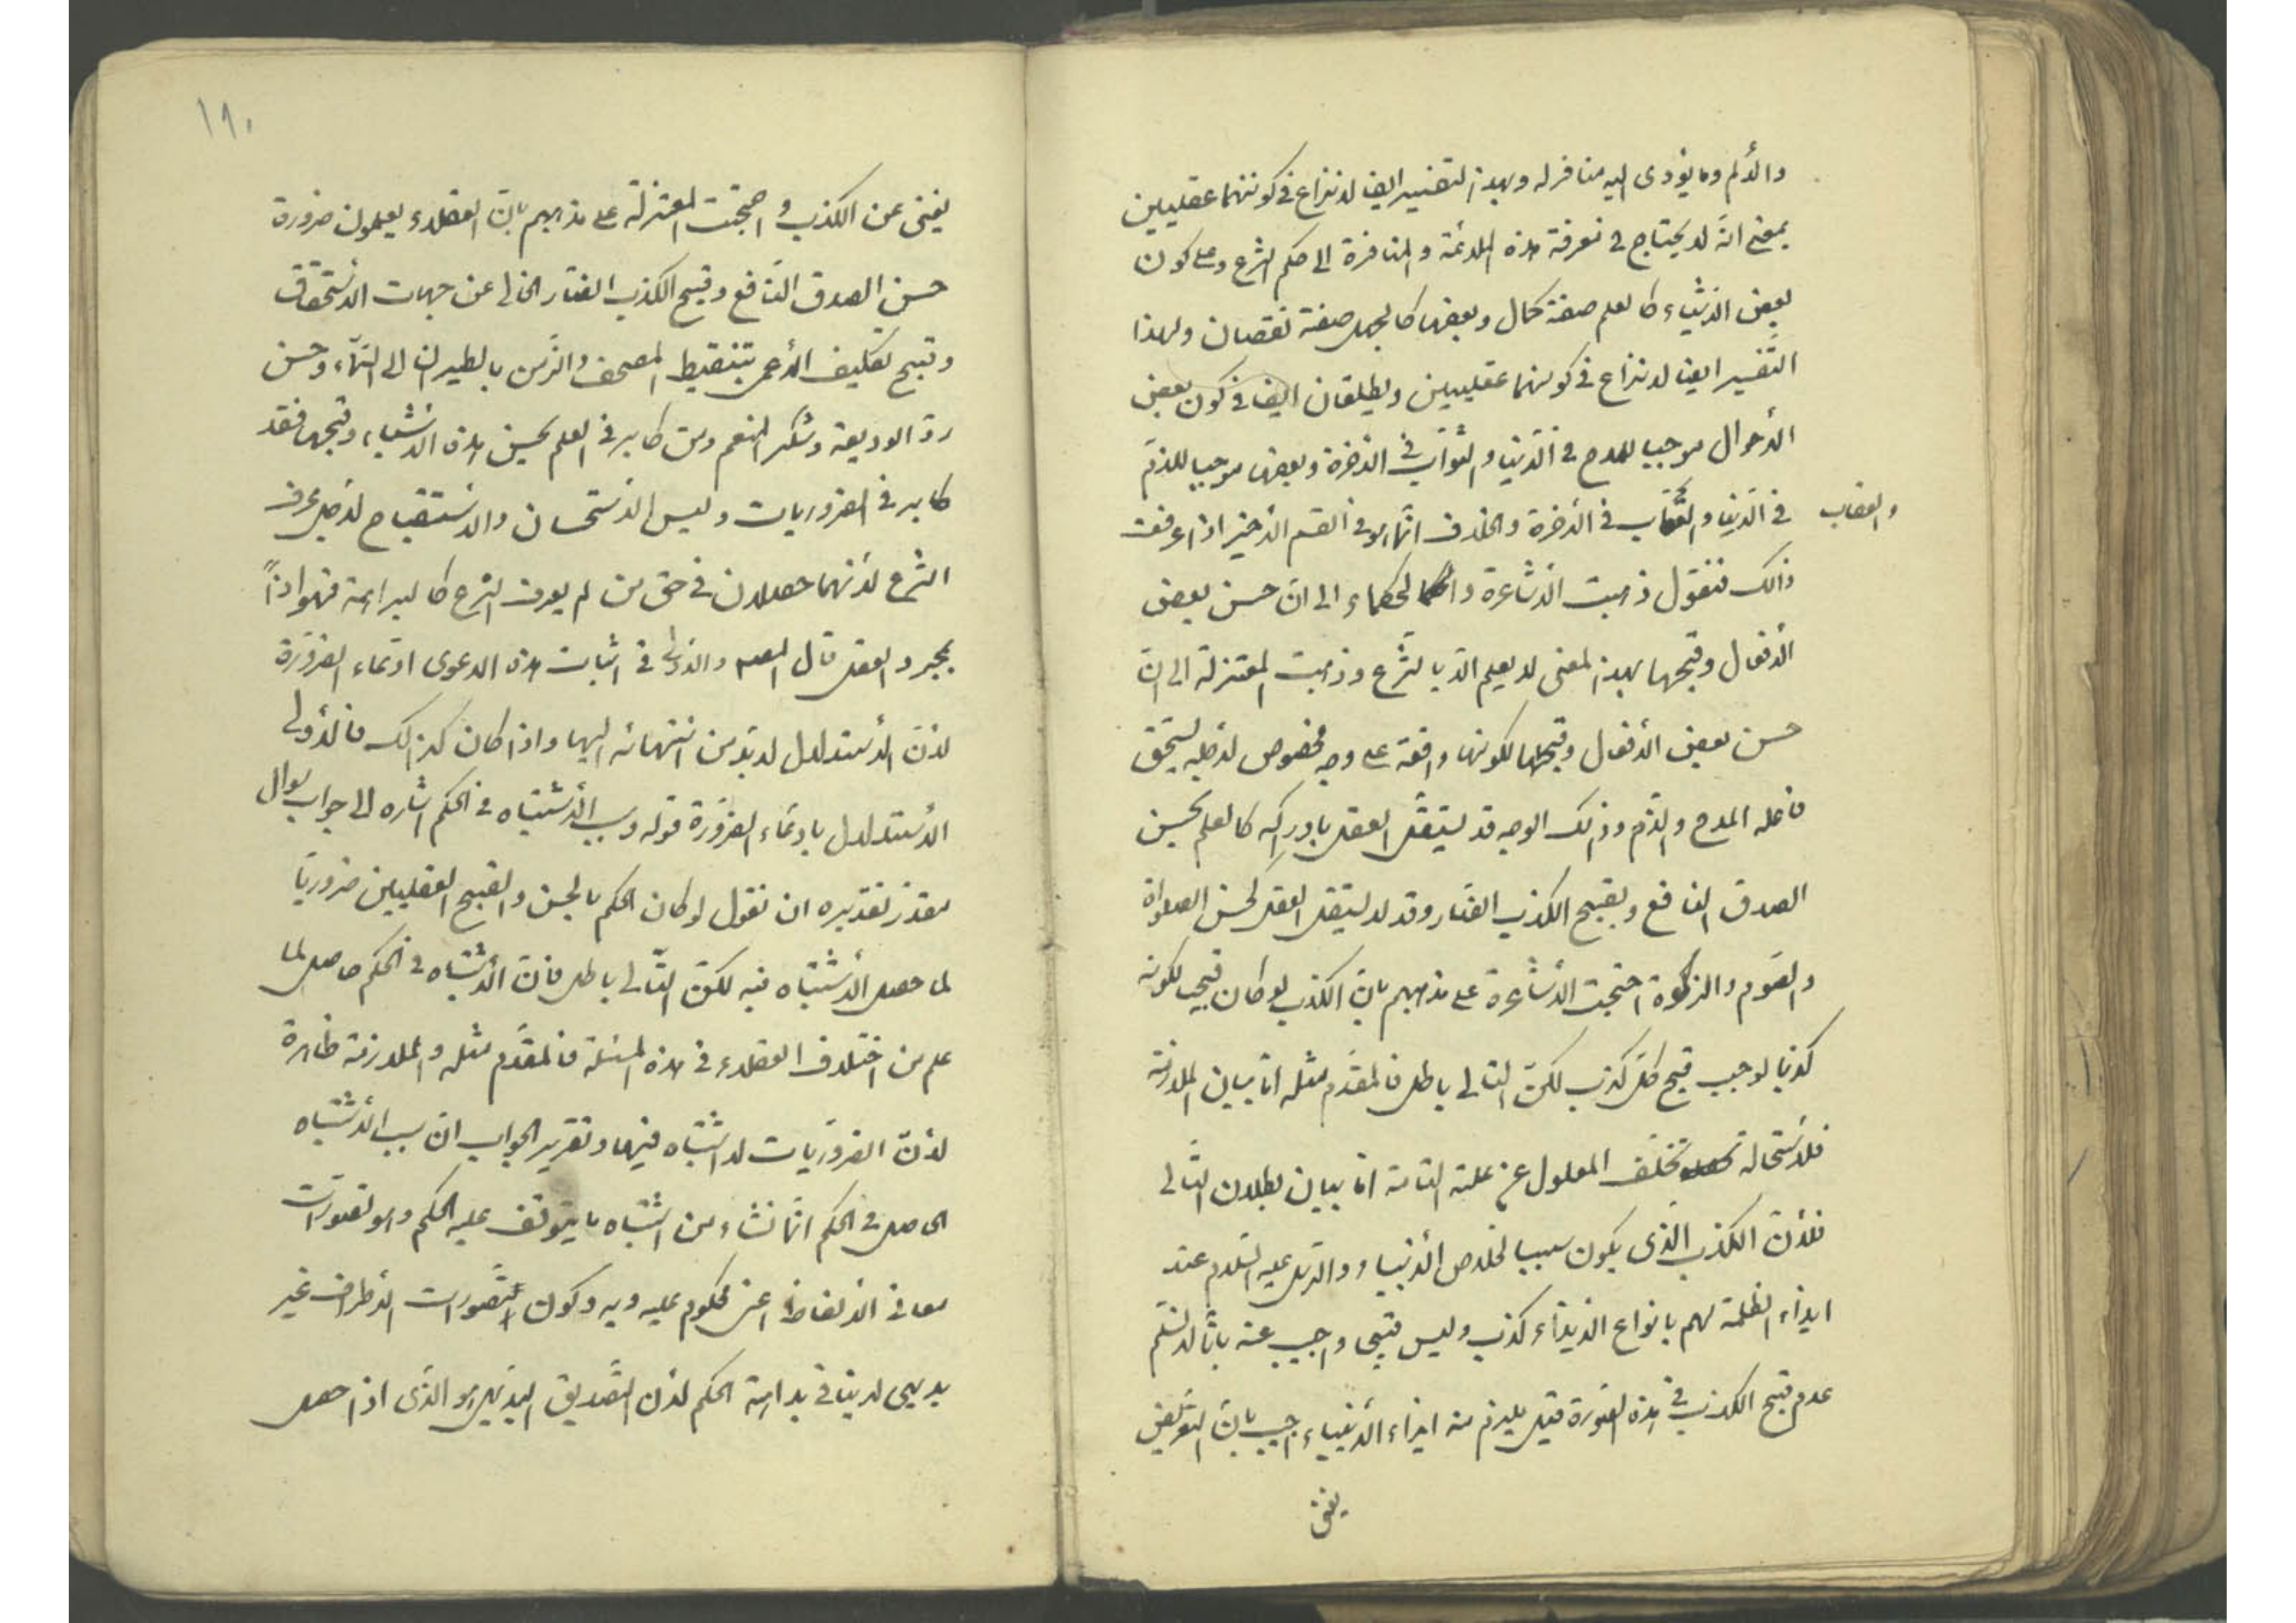 والألم وما يؤدى اليه منافر له وبهذا التفسير ايضا لا نزاع في كونهما عقليين
بمعنى انه لا يحتاج في معرفة هذه الملائمة والمنافرة الى حكم الشرع وعلى كون
بعض الأشياء كالعلم صفة كمال وبعضها كالجهل صفة نقصان ولهذا
التفسير ايضا لا نزاع في كونهما عقليين ويطلقان ايضا في كون بعض
الأحوال موجبا للمدح في الدنيا والثواب في الآخرة وبعضها موجبا للذم
في الدنيا والعقاب في الآخرة والخلاف انما هو في القسم الأخير اذا عرفت
والعقاب
ذالك فنقول ذهبت الأشاعرة والحكماء الى ان حسن بعض
الأفعال وقبحها بهذا المعنى لا يعلم الا بالشرع وذهبت المعتزلة الى ان
حسن بعض الأفعال وقبحها لكونها واقعة على وجه مخصوص لأجله يستحق
فاعله المدح والذم وذالك الوجه قد يستقل العقل بادراكه كالعلم بحسن
الصدق النافع وبقبح الكذب الضار وقد لا يستقل العقل كحسن الصلواة
والصوم والزكوة احتجت الأشاعرة على مذهبهم بان الكذب لو كان قبيحا لكونه
كذبا لوجب قبح كل كذب لكن التالى باطل فالمقدم مثله اما بيان الملازمة
فلأستحالة تخلف المعلول عن علته التامة اما بيان بطلان التالى
فلأن الكذب الذى يكون سببا لخلاص الأنبياء والرسل عليه السلام عند
ايذاء الظلمة لهم بانواع الأيذاء كذب وليس قبيحا واجيب عنه بانا لا نسلم
عدم قبح الكذب في هذه الصورة قيل يلزم منه ايذاء الأنبياء اجيب بان التعريض
يغنى
١٩٠
يغنى عن الكذب واحتجت المعتزلة على مذهبهم بان العقلاء يعلمون ضرورة
حسن الصدق النافع وقبح الكذب الضار الخالى عن جهات الأستحقاق
وقبح تكليف الأعمى بتنقيط المصحف والزمن بالطيران الى السماء وحسن
رد الوديعة وشكر المنعم ومن كابر في العلم بحسن هذه الأشياء وقبحها فقد
كابر في الضروريات وليس الأستحسان والأستقباح لأجل عرف
الشرع لأنهما حصلان في حق من لم يعرف الشرع كالبراهمة فهو اذاً
بمجرد العقل قال المصنف والأولى في اثبات هذه الدعوى ادعاء الضرورة
لأن الأستدلال لا بد من انتهائه اليها واذا كان كذالك فالأولى
الأستدلال بادعاء الضرورة قوله وسبب الأشتباه في الحكم اشاره الى جواب سؤال
مقدر تقديره ان نقول لو كان الحكم بالحسن والقبح العقليين ضروريا
لما حصل الأشتباه فيه لكن التالى باطل فان الأشتباه في الحكم حاصل لما
علم من اختلاف العقلاء في هذه المسئلة فالمقدم مثله والملازمة ظاهرة
لأن الضروريات لا اشتباه فيها وتقرير الجواب ان سبب الأشتباه
الحاصل في الحكم انما نشاء من اشتباه ما يتوقف عليه الحكم وهو تصورات
معانى الألفاظ اعنى محكوم عليه وبه وكون التصورات الأطراف غير
بديهى لا ينافى بداهة الحكم لأن التصديق البديهى هو الذى اذا حصل